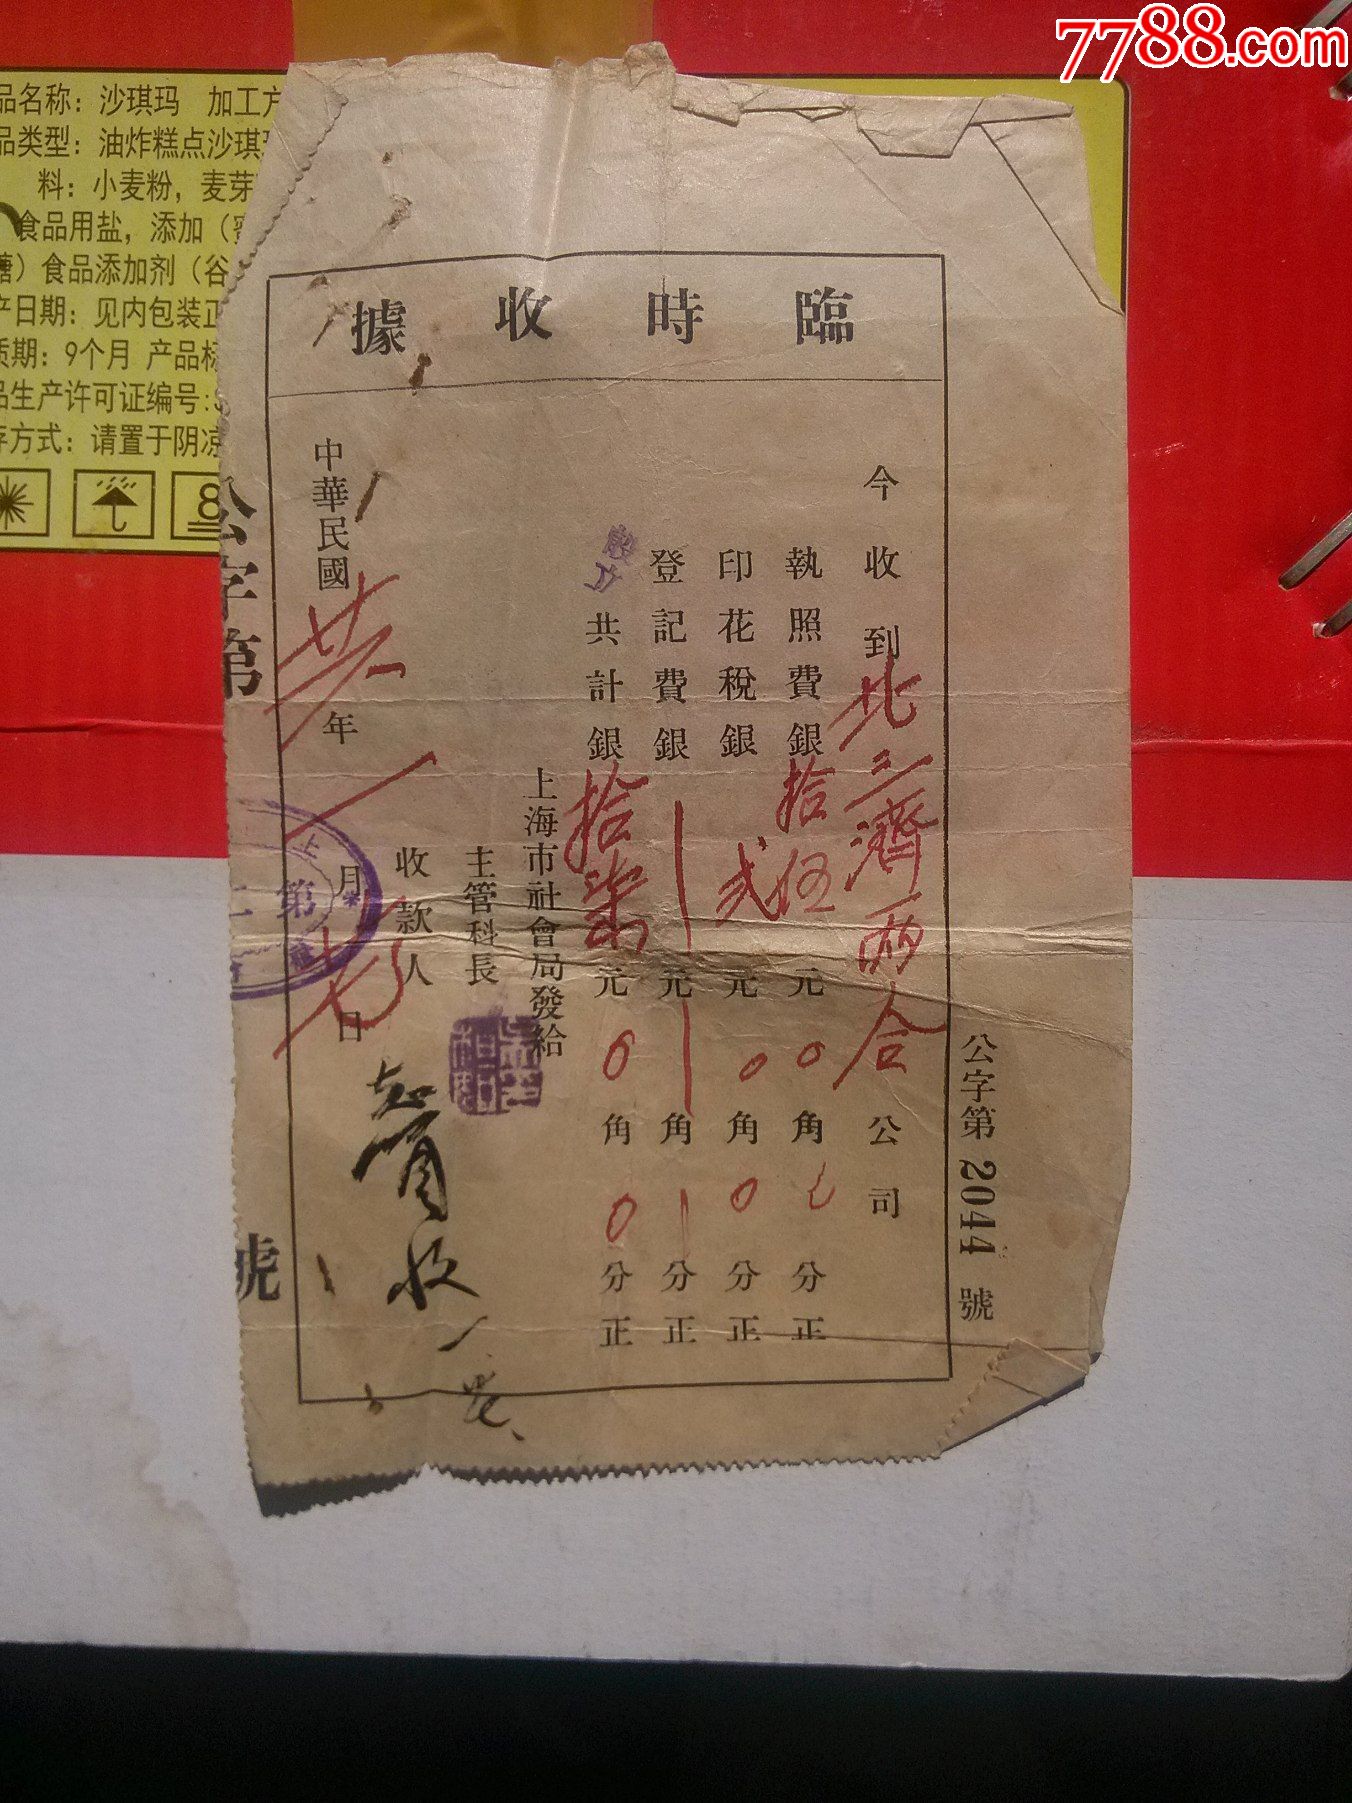 7788.com
品名称：沙琪玛 加工方
品类型：油炸糕点沙琪
料：小麦粉，麦芽
食品用盐，添加（
糖）食品添加剂（谷
产日期：见内包装正
质期：9个月 产品标
品生产许可证编号:
存方式：请置于阴凉
8
臨時收據
公字第2044號
今收到北三濟兩合公司
執照費銀拾伍元0角0分正
印花稅銀弍元0角0分正
登記費銀元角分正
共計銀拾柒元0角0分正
上海市社會局發給
主管科長
收款人
中華民國廿六年一月日
公字第
號
上
第